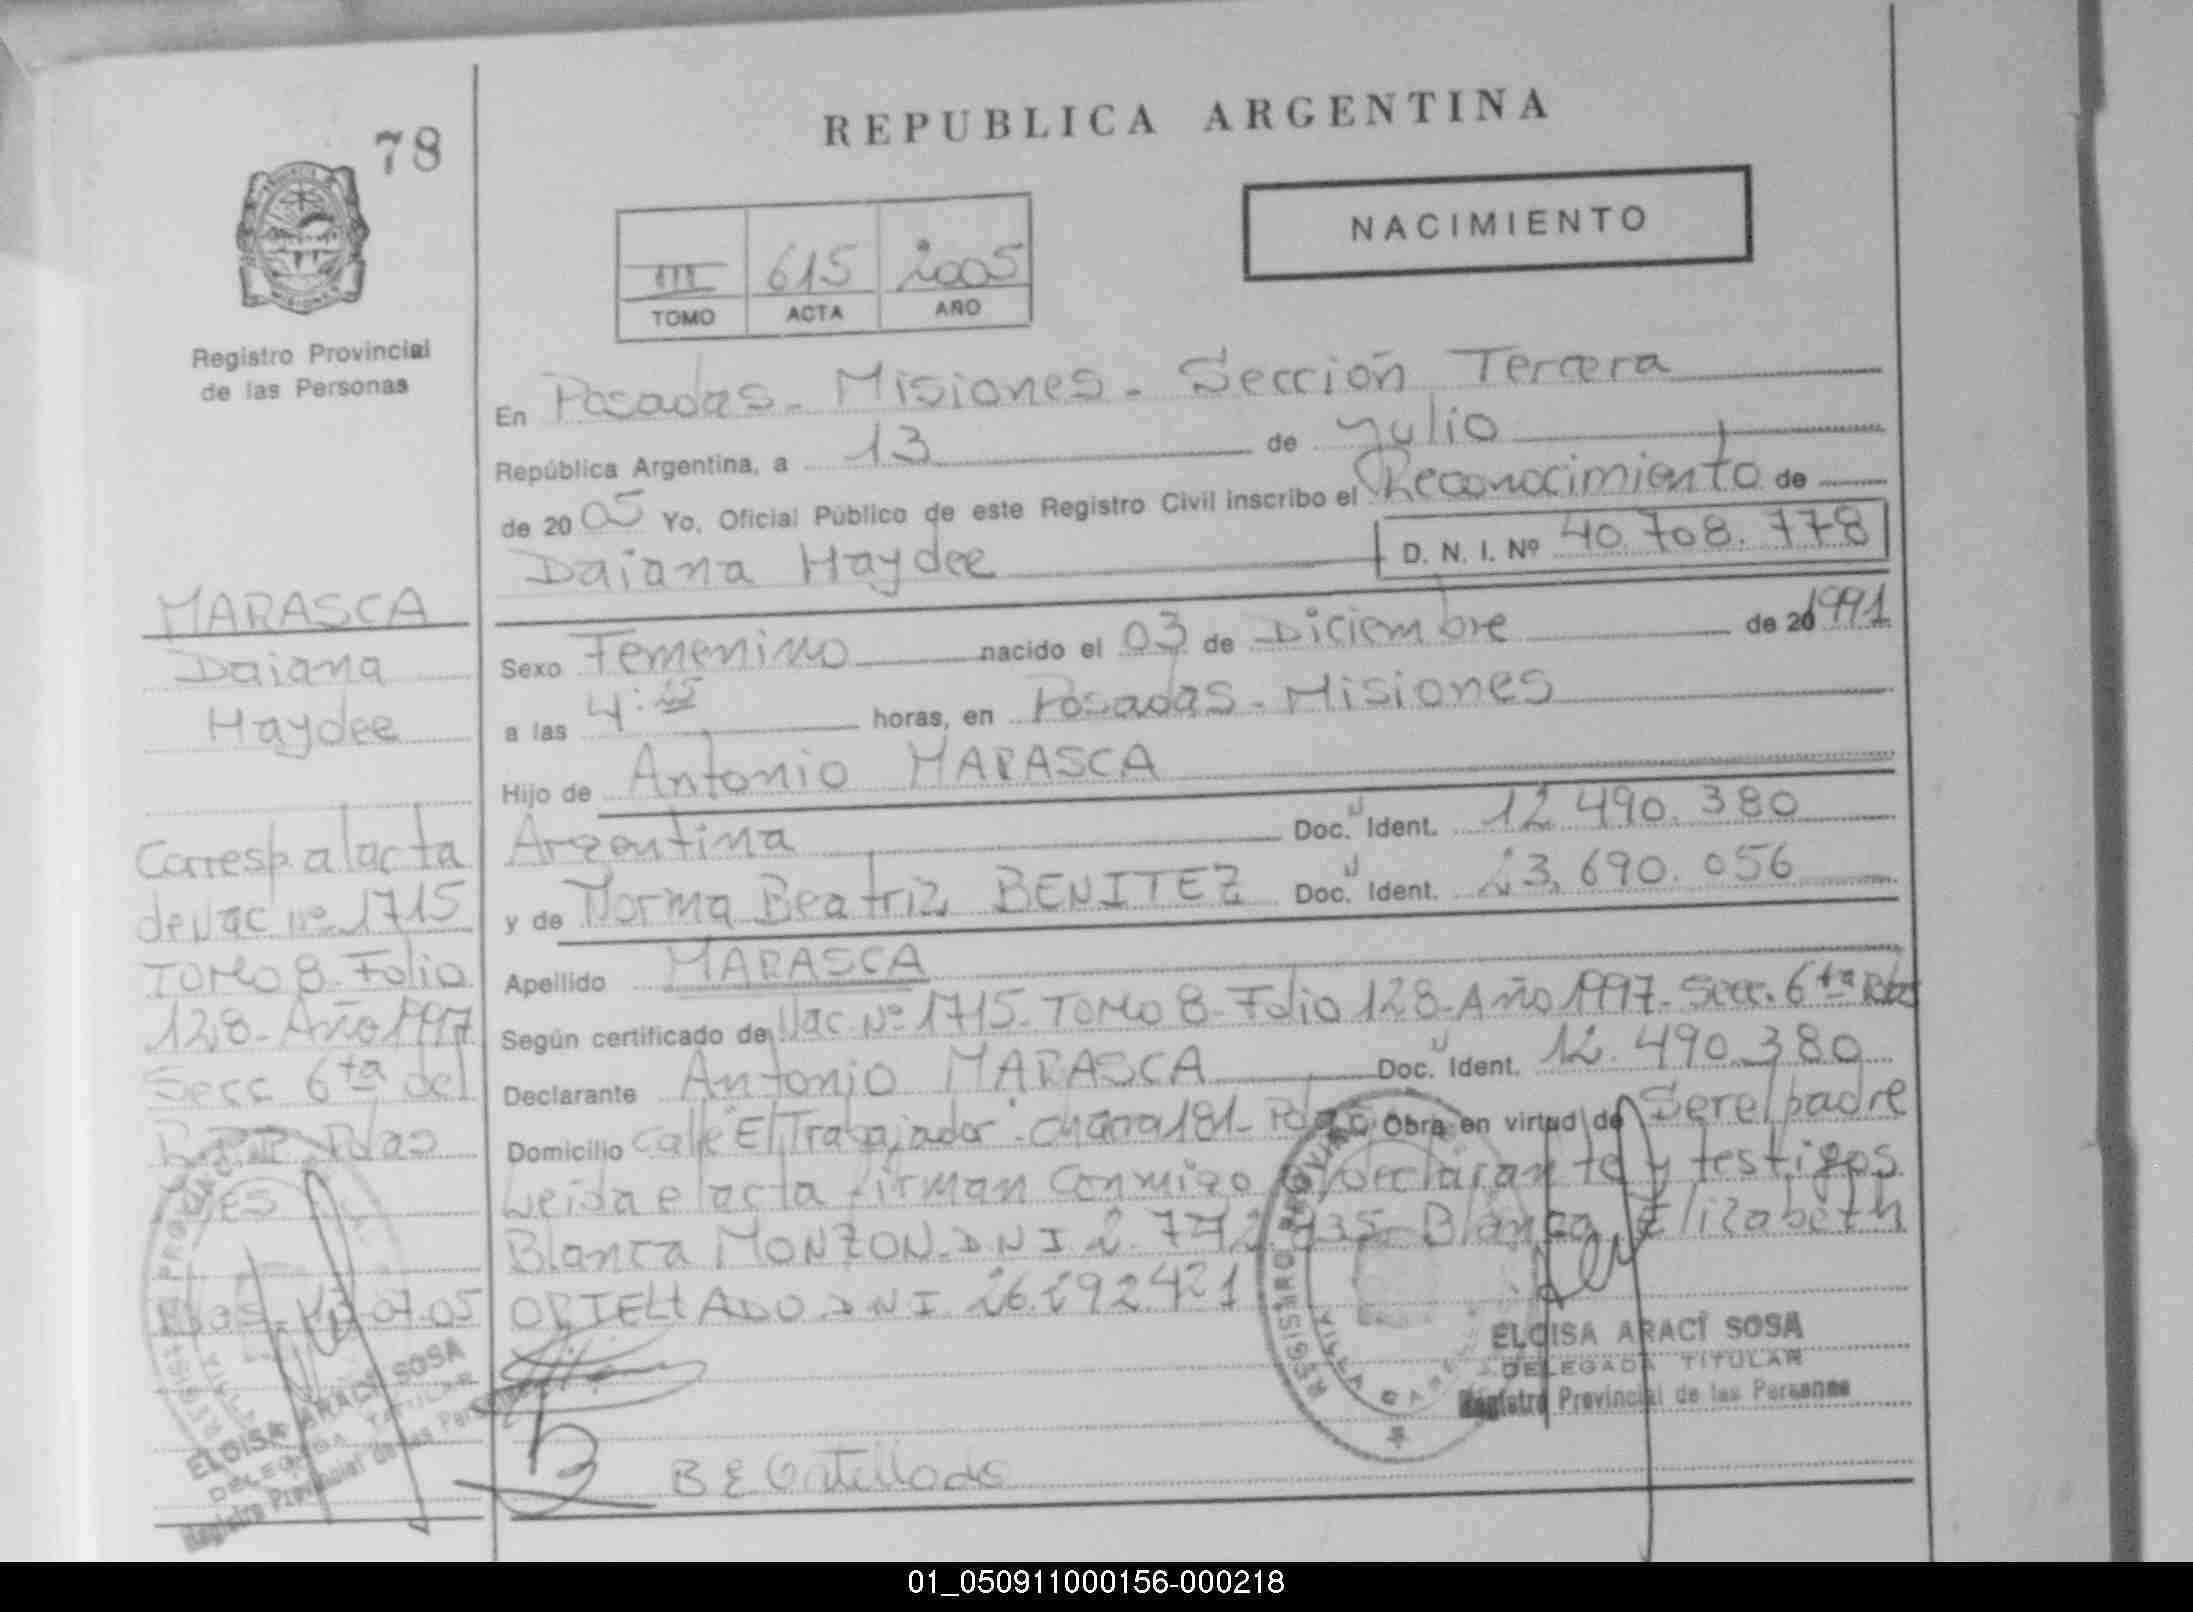 78
REPUBLICA ARGENTINA
NACIMIENTO
III 615 2005
TOMO ACTA AÑO
Registro Provincial
de las Personas
En Posadas - Misiones - Sección Tercera
República Argentina, a 13 de Julio
de 20 05 Yo, Oficial Público de este Registro Civil inscribo el Reconocimiento de
Daiana Haydee D. N. I. Nº 40.708.778
Sexo Femenino nacido el 03 de Diciembre de 20 1991
a las 4: horas, en Posadas - Misiones
Hijo de Antonio MARASCA
Argentina Doc. Ident. 12.490.380
y de Norma Beatriz BENITEZ Doc. Ident. 23.690.056
Apellido MARASCA
Según certificado de Nac. Nº 1715. TOMO 8 - Folio 128 - Año 1997 - Secc. 6ta Pdas
Declarante Antonio MARASCA Doc. Ident. 12.490.380
Domicilio Calle "El Trabajador" - Chacra 181 - Pdas Obra en virtud de Ser el padre
Leida el acta firman conmigo declarante y testigos
Blanca MONZON D.N.I. Blanca Elizabeth
D.N.I. 26.292.421
MARASCA
Daiana
Haydee
Corresp. al acta
de Nac Nº 1715
TOMO 8 - Folio
128 - Año 1997
Secc 6ta del
R.P.P. Pdas
Mes
Pdas 13-07-05
ELOISA ARACÍ SOSA
DELEGADA TITULAR
Registro Provincial de las Personas
ELOISA ARACÍ SOSA
DELEGADA TITULAR
Registro Provincial de las Personas
01_050911000156-000218